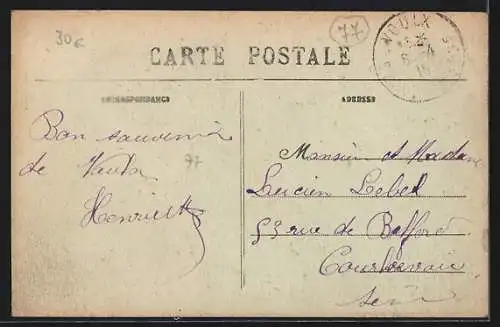 30€
77
CARTE POSTALE
CORRESPONDANCE
ADRESSE
Bon souvenir
de
Henriette
77
Monsieur et Madame
Lucien Lebel
53 rue de Belfort
Courbevoie
Seine